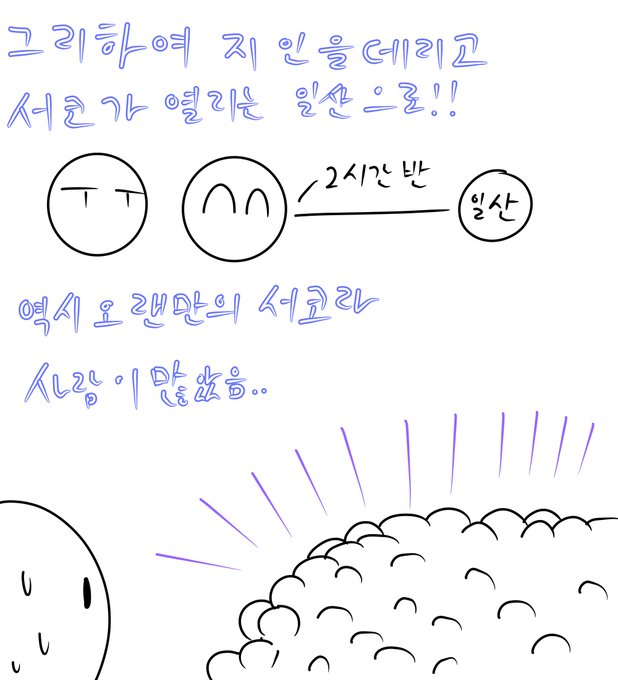 그리하여 지인을 데리고
서코가 열리는 일산으로!!
2시간 반
일산
역시 오랜만의 서코라
사람이 많았음..